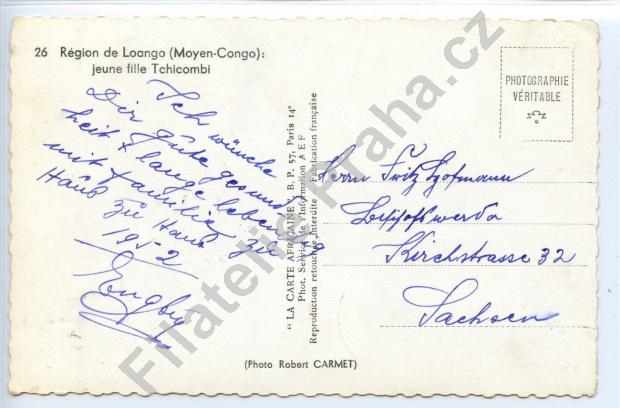 26 Région de Loango (Moyen-Congo):
jeune fille Tchicombi
Ich wünche
Dir gute gesund-
heit + lange leben
mit Familie
Haus zu Haus
195-2
"LA CARTE AFRICAINE", B. P. 57, Paris 14e
Phot. Service de l'Information A E F
Reproduction retouche interdite - Fabrication française
PHOTOGRAPHIE
VÉRITABLE
Herrn Fritz Hofmann
Bischofswerda
Kirchstrasse 32
Sachsen
(Photo Robert CARMET)
Filatelie-Praha.cz